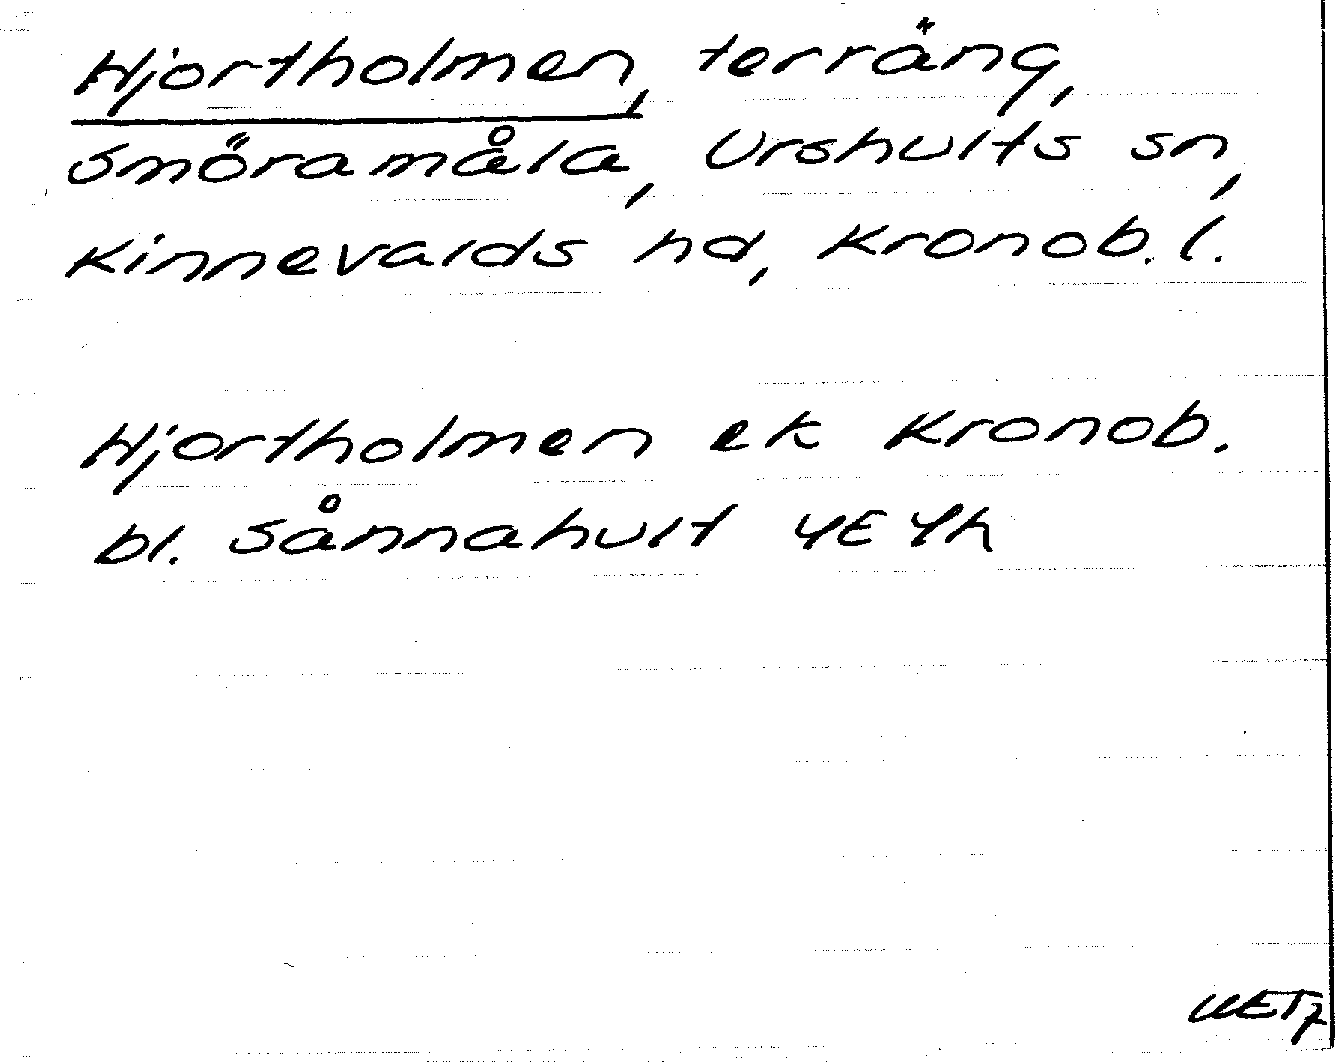 Hjortholmen, terräng,
Smöramåla, Urshults sn,
Kinnevalds hd, Kronob. l.
Hjortholmen ek Kronob.
bl. Sånnahult 4E 4h